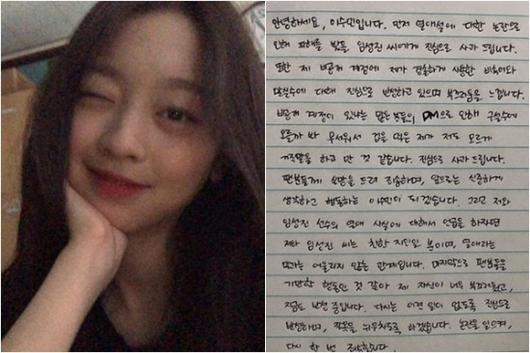 안녕하세요, 이수민입니다. 먼저 열애설에 대한 논란으로
인해 피해를 받을 임성진 씨에게 진심으로 사과 드립니다.
또한 제 비공개 계정에 제가 경솔하게 사용한 비속어와
말실수에 대해 진심으로 반성하고 있으며 부끄러움을 느낍니다.
비공개 계정이 있냐는 많은 분들의 DM으로 인해 구설수에
오를까 봐 무서워서 겁을 먹은 제가 저도 모르게
거짓말을 하고 만 것 같습니다. 진심으로 사과 드립니다.
팬분들께 실망을 드려 죄송하며, 앞으로는 신중하게
생각하고 행동하는 이수민이 되겠습니다. 그리고 저와
임성진 선수의 열애 사실에 대해서 언급을 하자면
저와 임성진 씨는 친한 지인일 뿐이며, 열애라는
말과는 어울리지 않는 관계입니다. 마지막으로 팬분들을
기만한 행동인 것 같아 제 자신이 너무 부끄러웠고,
지금도 반성 중입니다. 다시는 이런 일이 없도록 진심으로
반성하며, 잘못을 뉘우치도록 하겠습니다.
다시 한 번 죄송합니다.